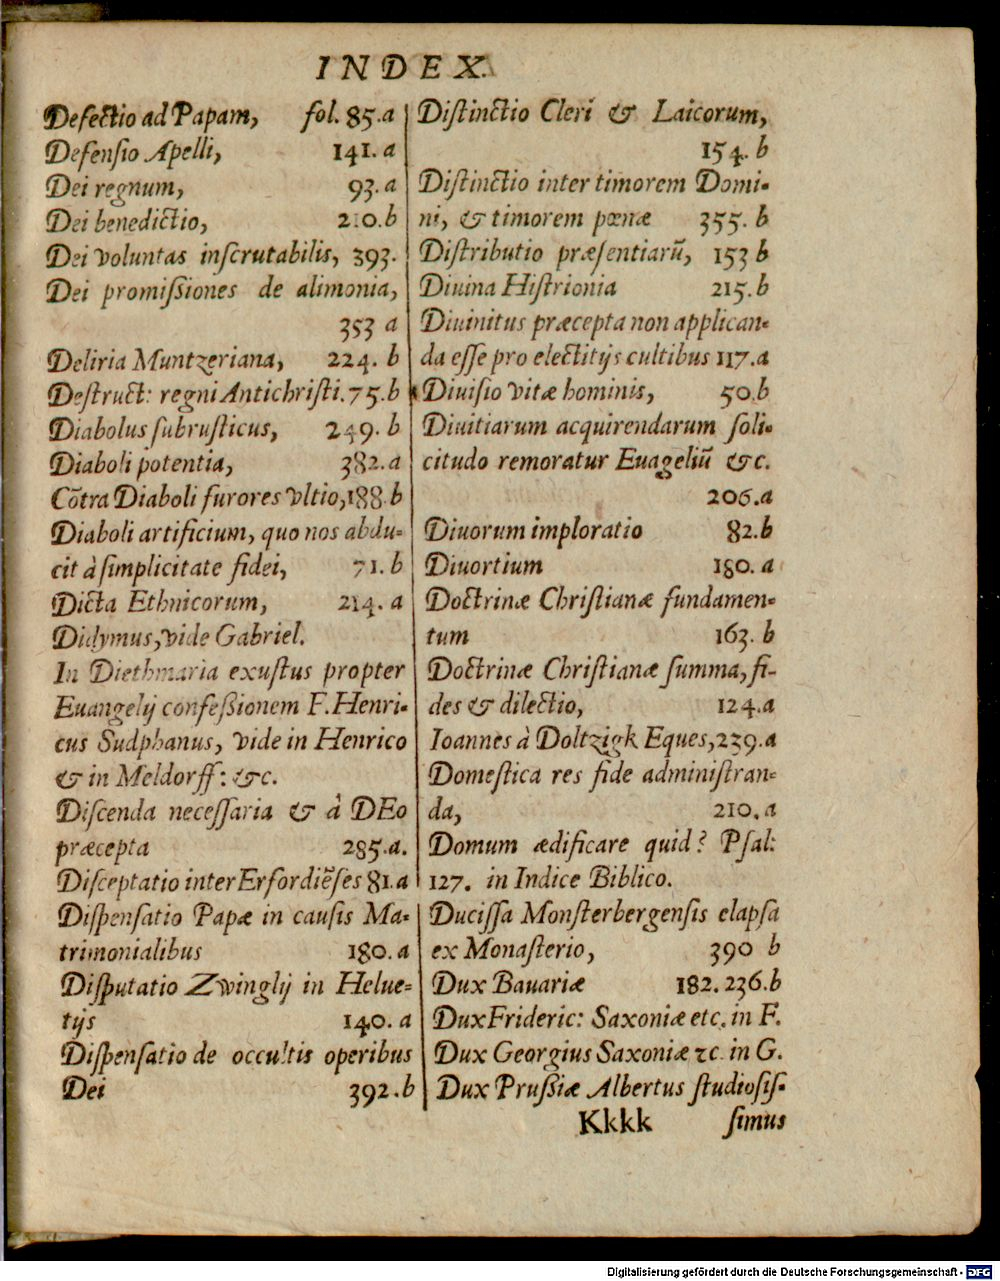 INDEX.
Defectio ad Papam, fol. 85.a
Defensio Apelli, 141. a
Dei regnum, 93. a
Dei benedictio, 210.b
Dei voluntas inscrutabilis, 393.
Dei promissiones de alimonia,
353 a
Deliria Muntzeriana, 224. b
Destruct: regni Antichristi. 75. b
Diabolus subrusticus, 249. b
Diaboli potentia, 382. a
Cōtra Diaboli furores vltio, 188 b
Diaboli artificium, quo nos abdu-
cit à simplicitate fidei, 71. b
Dicta Ethnicorum, 214. a
Didymus, vide Gabriel.
In Diethmaria exustus propter
Euangelij confessionem F. Henri-
cus Sudphanus, vide in Henrico
& in Meldorff: &c.
Discenda necessaria & à DEo
præcepta 285. a.
Disceptatio inter Erfordiēses 81. a
Dispensatio Papæ in causis Ma-
trimonialibus 180. a
Disputatio Zwinglij in Helue-
tijs 140. a
Dispensatio de occultis operibus
Dei 392. b
Distinctio Cleri & Laicorum,
154. b
Distinctio inter timorem Domi-
ni, & timorem pœnæ 355. b
Distributio præsentiarū, 153 b
Diuina Histrionia 215. b
Diuinitus præcepta non applican-
da esse pro electitijs cultibus 117.a
Diuisio vitæ hominis, 50.b
Diuitiarum acquirendarum soli-
citudo remoratur Euageliū &c.
206.a
Diuorum imploratio 82.b
Diuortium 180. a
Doctrinæ Christianæ fundamen-
tum 163. b
Doctrinæ Christianæ summa, fi-
des & dilectio, 124.a
Ioannes à Doltzigk Eques, 239.a
Domestica res fide administran-
da, 210. a
Domum ædificare quid? Psal:
127. in Indice Biblico.
Ducissa Monsterbergensis elapsa
ex Monasterio, 390 b
Dux Bauariæ 182. 236.b
Dux Frideric: Saxoniæ etc. in F.
Dux Georgius Saxoniæ ⁊c. in G.
Dux Prussiæ Albertus studiosis-
Kkkk simus
Digitalisierung gefördert durch die Deutsche Forschungsgemeinschaft - DFG